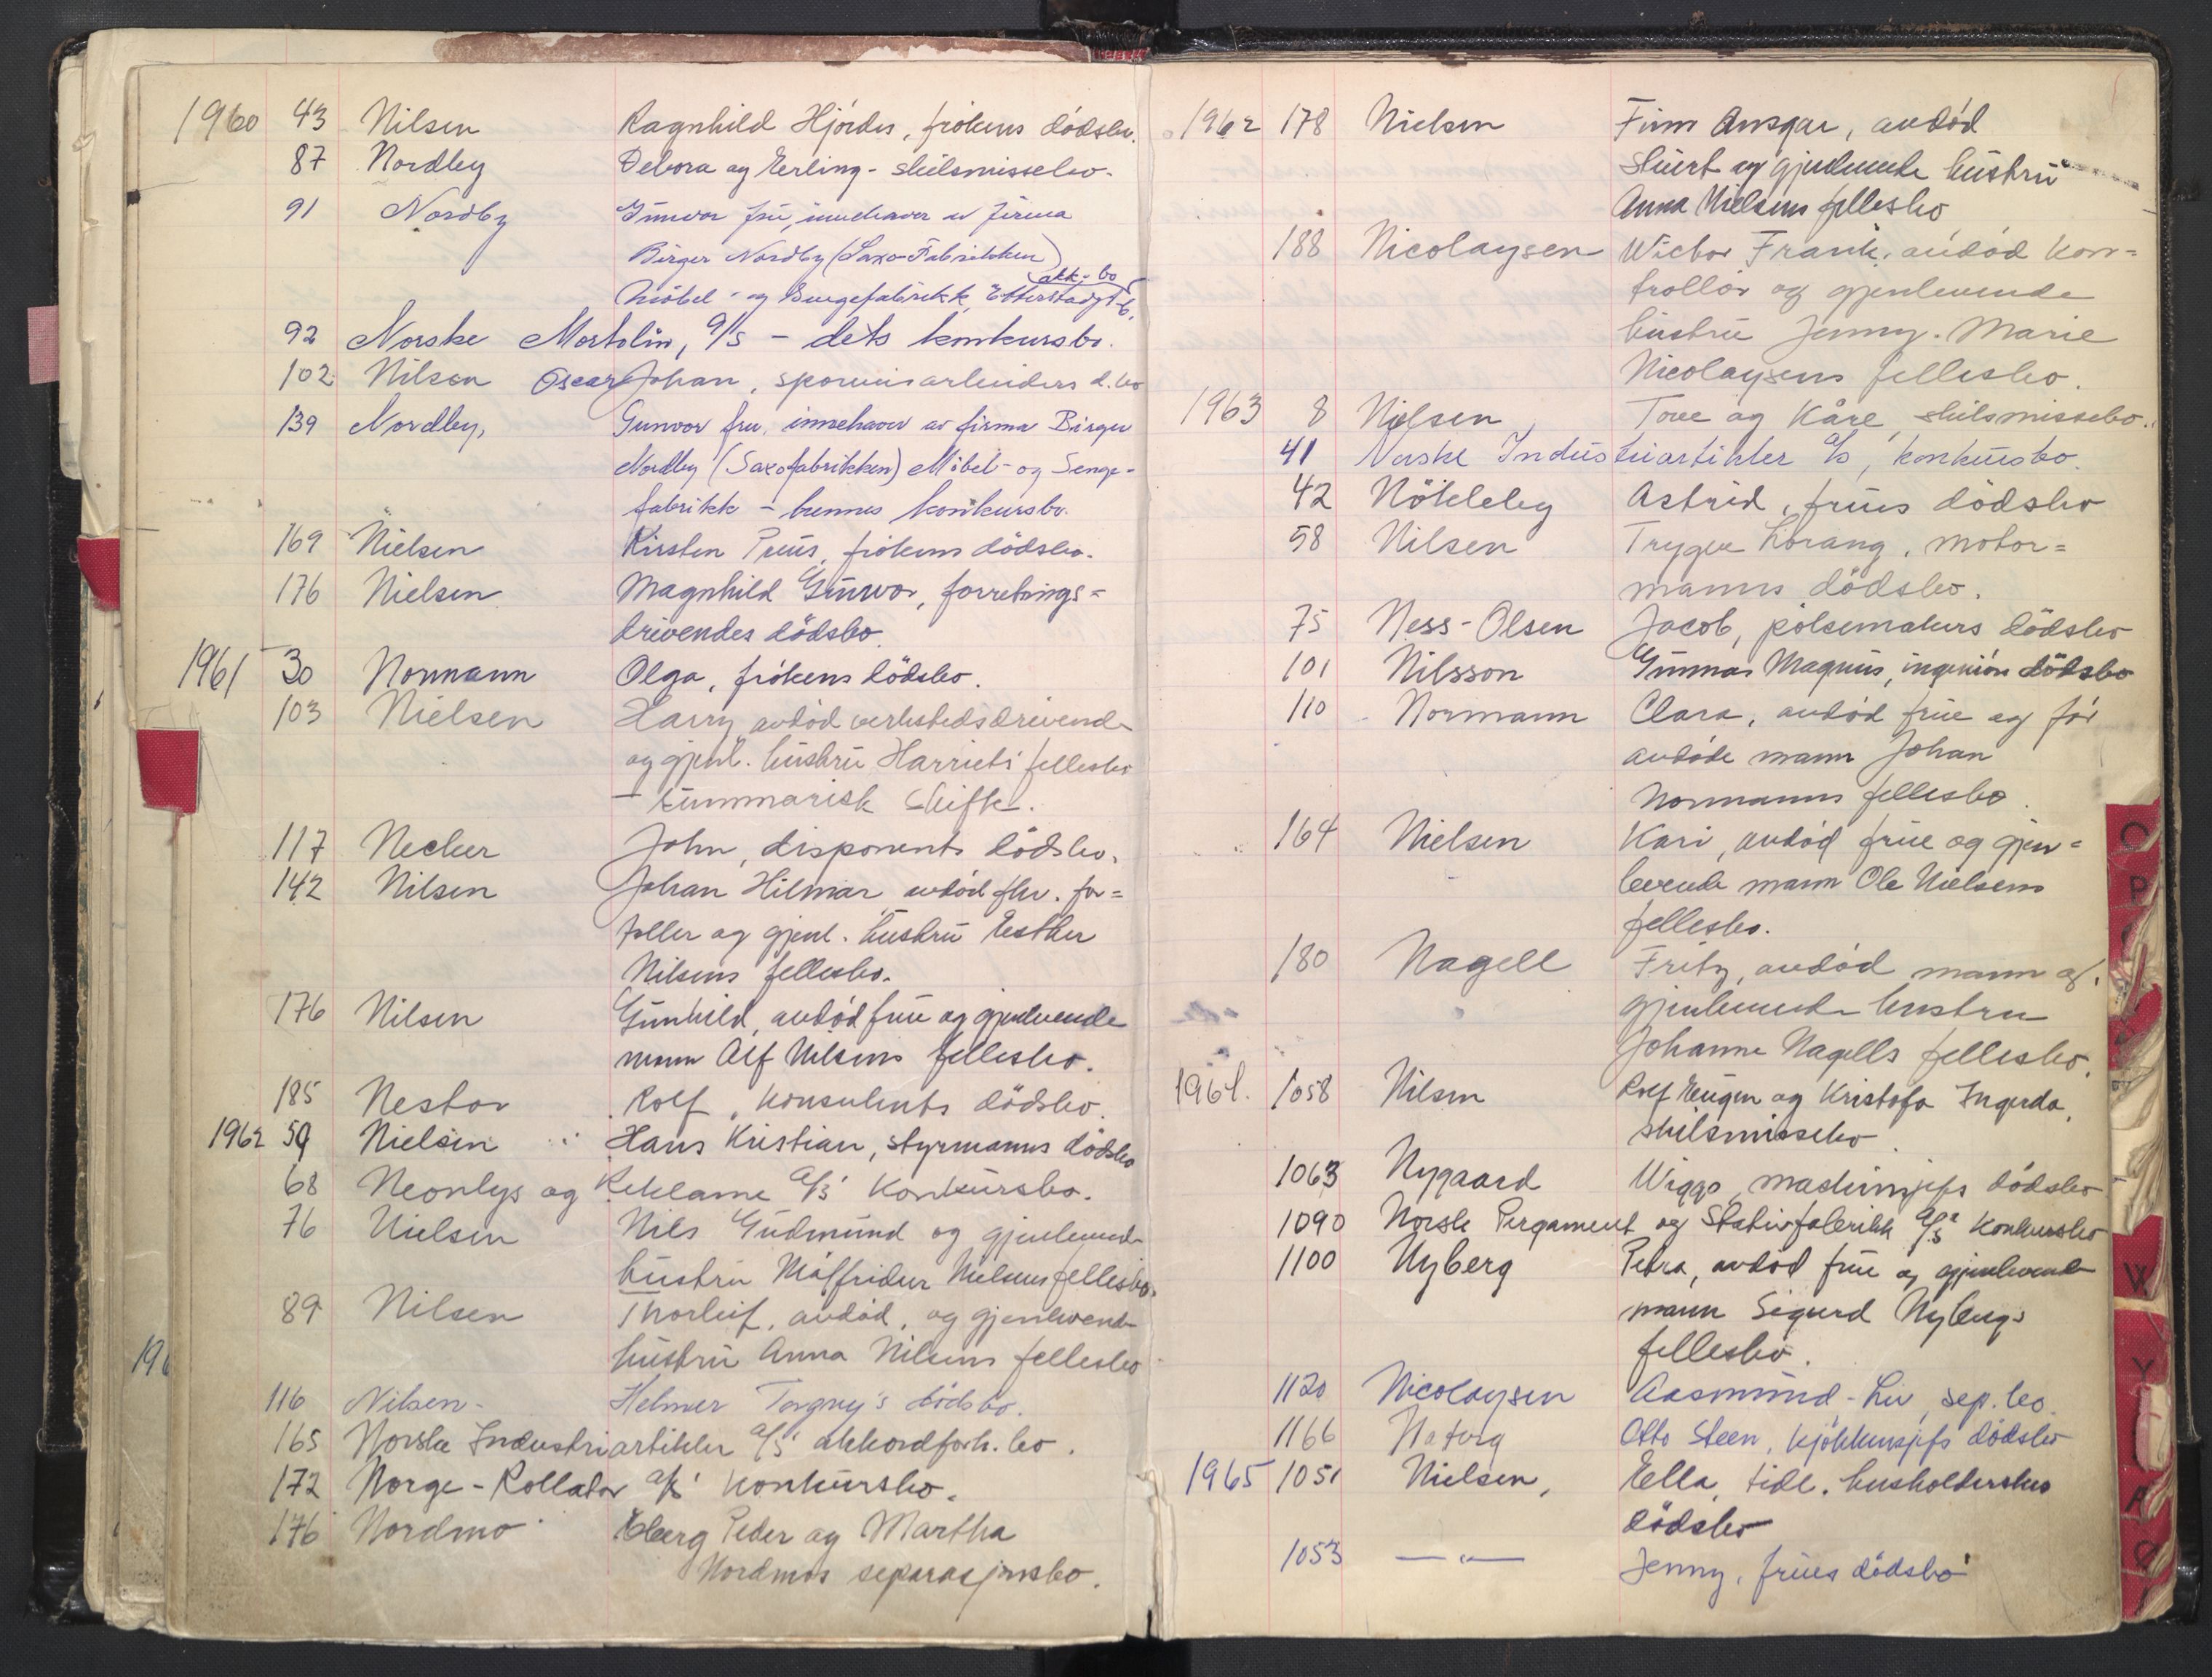 1960 43 Nilsen Ragnhild Hjördis, frökens dödsbo.
87 Nordby Debora og Erling - skilsmissebo.
91 Nordby Gunvor fru, innehaver av firma
Birger Nordby (Saxo-Fabrikken)
akk.bo
Möbel- og Sengefabrikk, Etterstadgt 6.
92 Norske Mortolin, A/S - dets konkursbo.
102 Nilsen Oscar Johan, sporveisarbeiders d.bo
139 Nordby, Gunvor fru, innehaver av firma Birger
Nordby (Saxofabrikken) Möbel- og Senge-
fabrikk - hennes konkursbo.
169 Nielsen Kirsten Preus, frökens dödsbo.
176 Nielsen Magnhild Gunvor, forretnings=
drivendes dödsbo.
1961 30 Normann Olga, frökens dödsbo.
103 Nielsen Harry, avdöd verkstedsdrivende
og gjenl. hustru Harriets fellesbo
- summarisk skifte.
117 Necker John, disponents dödsbo.
142 Nilsen Johan Hilmar avdöd fhv. for=
toller og gjenl. hustru Esther
Nilsens fellesbo.
176 Nilsen Gunhild, avdöd frue og gjenlevende
mann Alf Nilsens fellesbo.
185 Nestor Rolf, konsulents dödsbo.
1962 59 Nielsen Hans Kristian, styrmanns dödsbo
68 Neonlys og Reklame A/S konkursbo.
76 Nielsen Nils Gudmund og gjenlevende
hustru Málfridur Nielsens fellesbo.
89 Nilsen Thorleif, avdöd, og gjenlevende
hustru Anna Nilsens fellesbo
196
116 Nilsen- Helmer Torgny's dödsbo.
165 Norske Industriartikler A/S akkordforh.bo.
172 Norge-Rollator A/S konkursbo.
176 Nordmo Eberg Peder og Martha
Nordmos separasjonsbo.
1962 178 Nielsen Finn Ansgar, avdöd
stuert og gjenlevende hustru
Anna Nielsens fellesbo
188 Nicolaysen Wictor Frank, avdöd kon=
trollör og gjenlevende
hustru Jenny Marie
Nicolaysens fellesbo.
1963 8 Nielsen, Tove og Kåre, skilsmissebo.
41 Norske Industriartikler A/S, konkursbo.
42 Nökleby Astrid, frues dödsbo
58 Nilsen Trygve Lorang, motor=
manns dödsbo.
75 Ness-Olsen Jacob, pölsemakers dödsbo
101 Nilsson Gunnar Magnus, ingeniörs dödsbo
110 Normann Clara, avdöd frue og för
avdöde mann Johan
Normanns fellesbo.
164 Nielsen Kari, avdöd frue og gjen=
levende mann Ole Nielsens
fellesbo.
180 Nagell Fritz, avdöd mann og
gjenlevende hustru
Johanne Nagells fellesbo.
1964. 1058 Nilsen Rolf Eugen og Kristofa Ingerda,
skilsmissebo.
1063 Nygaard Wiggo, maskinsjefs dödsbo
1090 Norsk Pergament og Stativfabrikk A/S konkursbo
1100 Nyberg Petra, avdöd frue og gjenlevende
mann Sigurd Nybergs
fellesbo.
1120 Nicolaysen Aasmund - Liv, sep.bo.
1166 Natvig Otto Steen, kjökkensjefs dödsbo
1965 1051 Nielsen, Ella, tidl. husholderskes
dödsbo
1053 — " — Jenny, frues dödsbo
O
P
W
Y
Æ
Ø